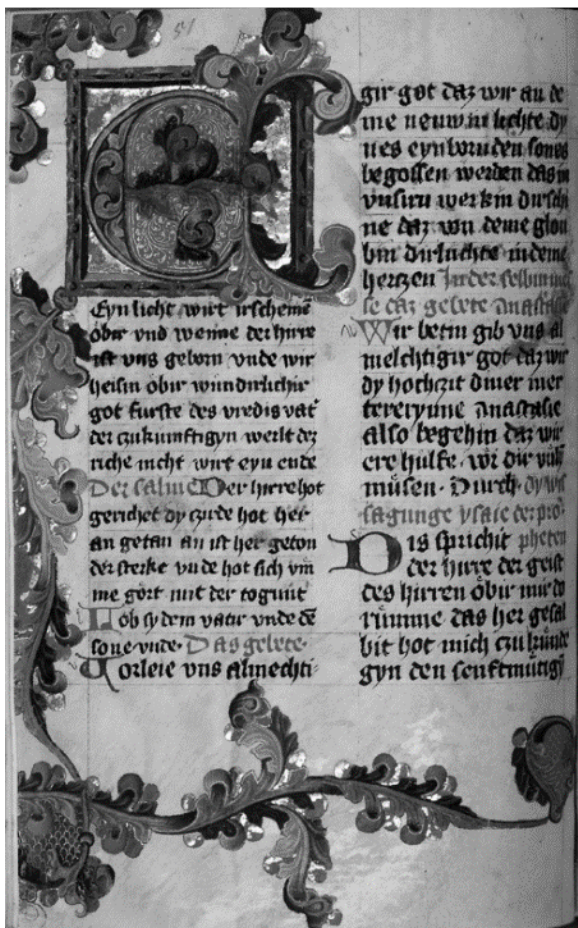 Eyn licht wirt irscheinē
obir vnd wenne der hirre
ist vns geborn vnde wir
heisin obir wundirlichir
got furste des vredis vatʼ
der czukumftigyn werlt dez
riche nicht wirt eyn ende
Der salme Der hirre hot
gerichet dy czirde hot her
an getan an ist her geton
der sterke vnde hot sich vm
me gort mit der togunt
Lob sy dem vatir vnde dē
sone vnde· Das gebete·
Vorleie vns almechti-
gir got daz wir an de
me neuwin lichte dy
nes eynborn den sones
begossen werden das in
vnsirn werkin dirschi
ne daz von deme glou
bin dirluchte in deme
hertzen In der selbin mes
se daz gebete Anastasie
Wir betin gib vns al
mechtigir got daz wir
dy hochzit diner mer
tereryinne anastasie
also begehin daz wir
ere hulfe· wir vuln
müsen· Durch· dy wis
sagunge ysaie der pro
pheten
Dis sprichit
der hirre der geist
des hirren öbir mir do
rümme das her gesal
bit hot mich czu kunde
gyn den senftmütigē